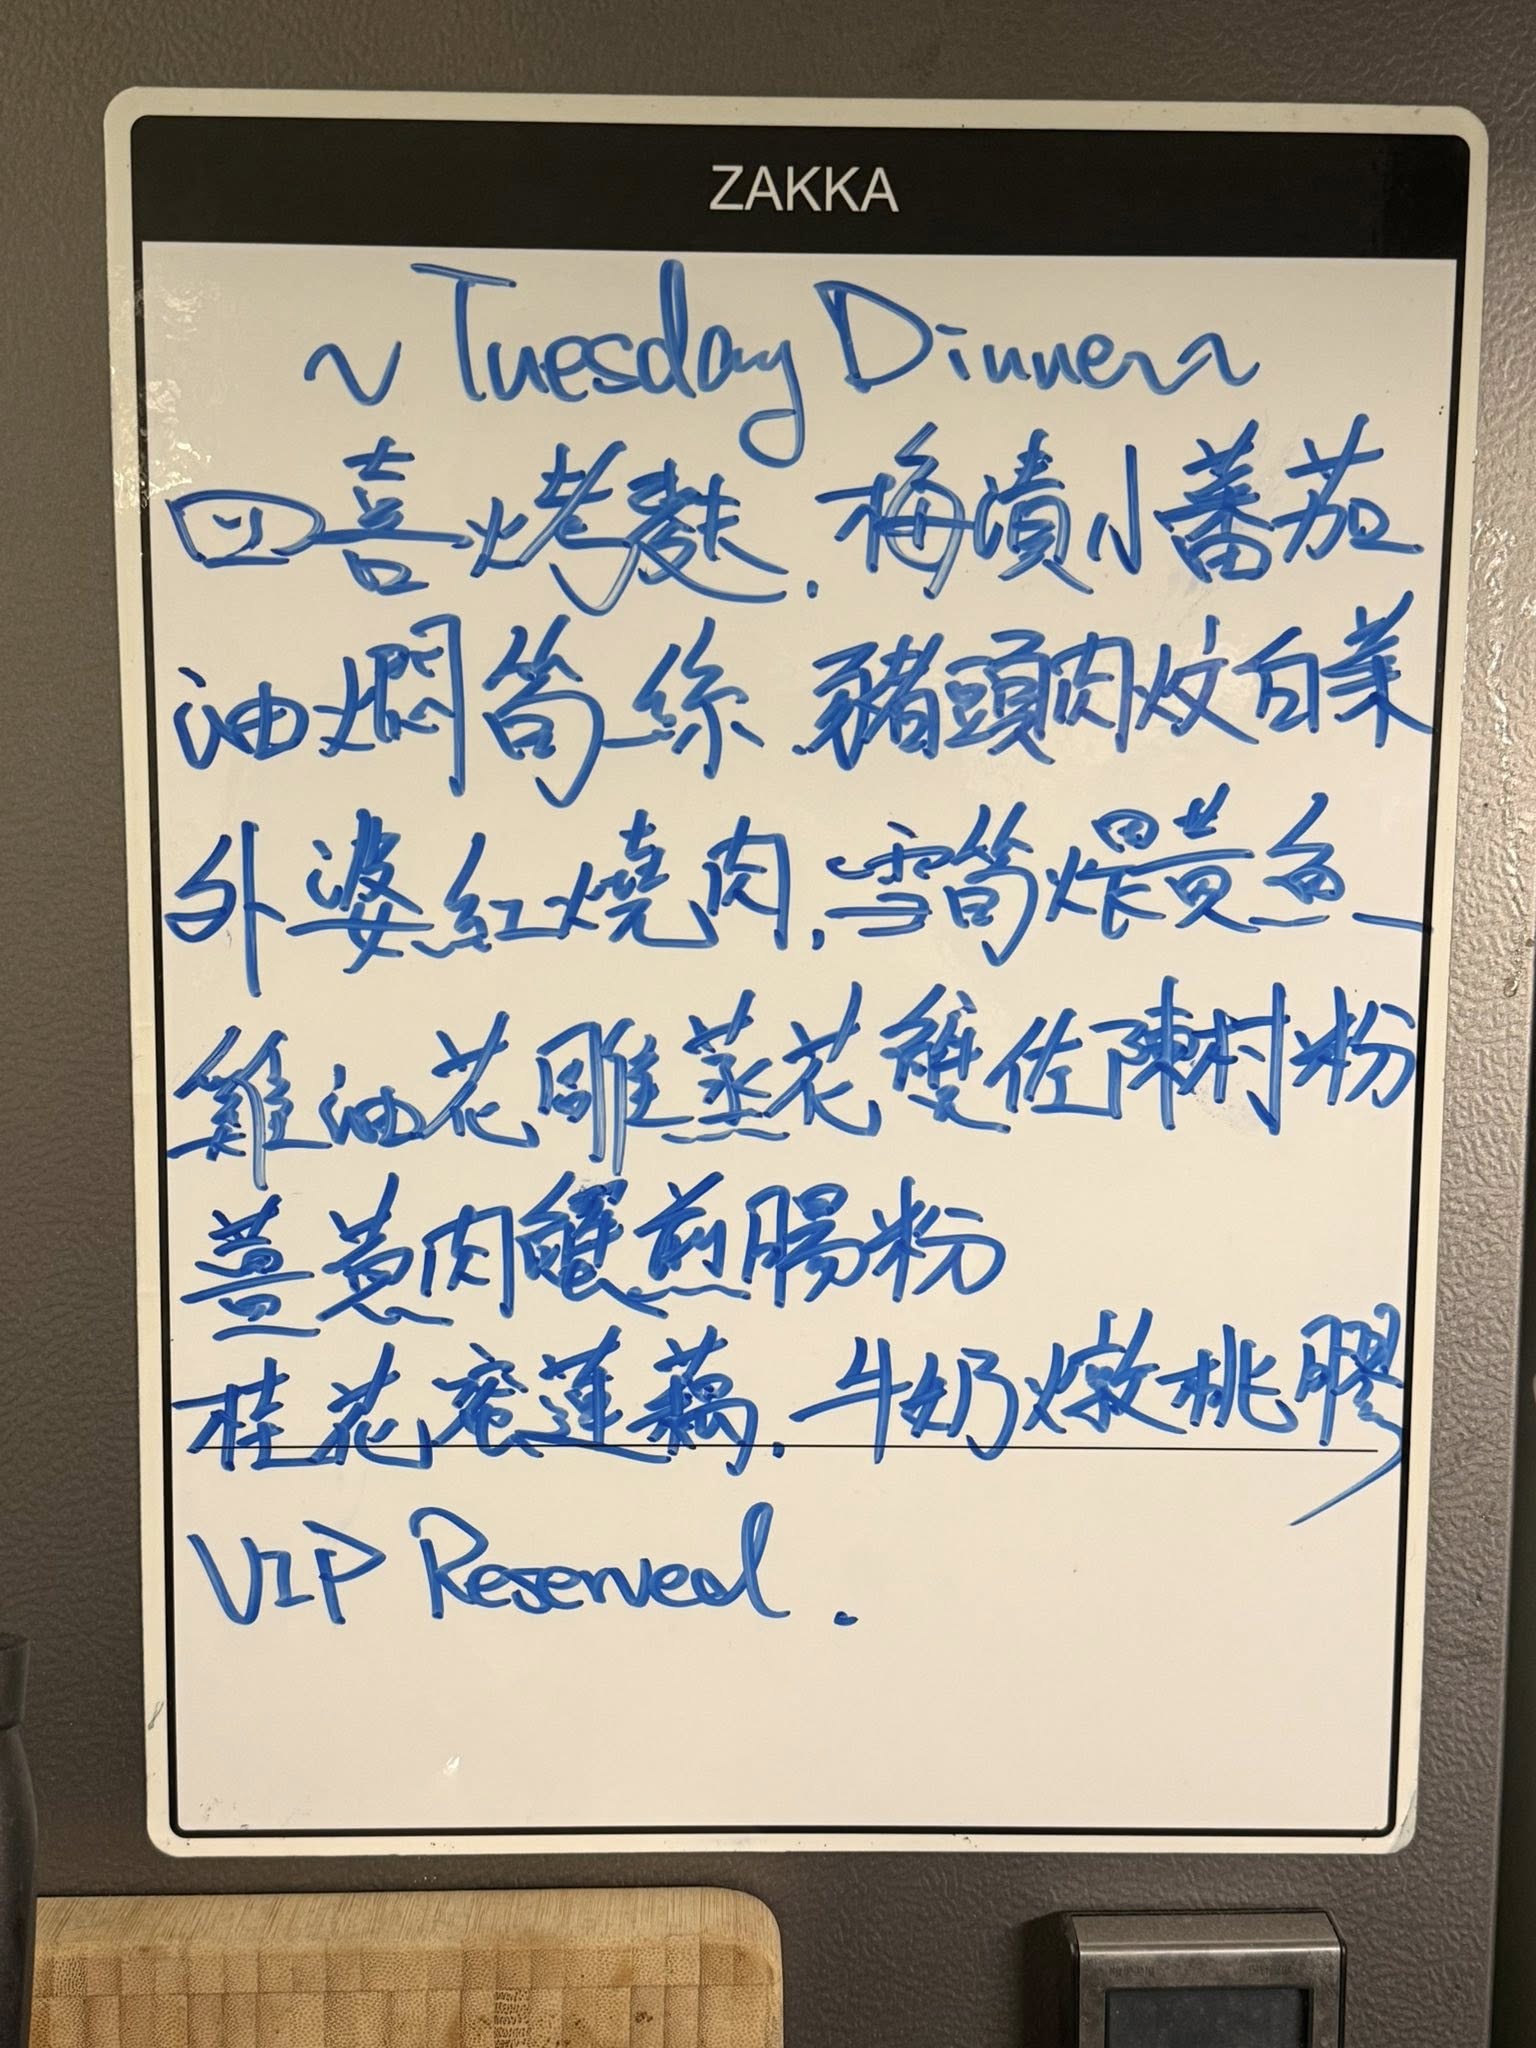 ZAKKA
~Tuesday Dinner~
四喜烤麩.梅漬小蕃茄
油燜筍絲.豬頭肉炆白菜
外婆紅燒肉.雪筍煨黃魚
雞油花雕蒸花蟹佐陳村粉
薑蔥肉蟹煎腸粉
桂花蜜蓮藕.牛奶燉桃膠
VIP Reserved.